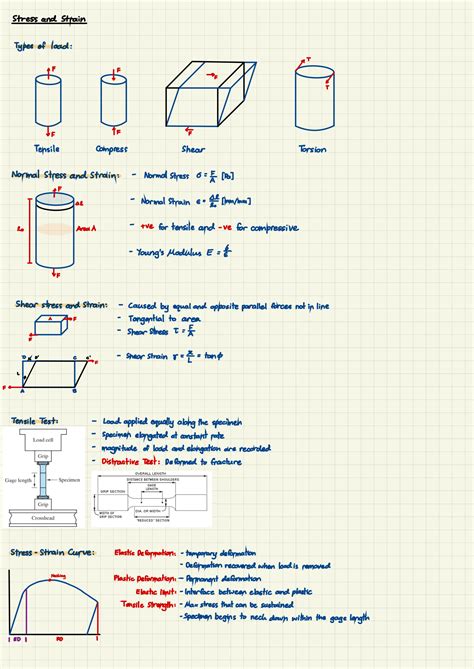 Stress and Strain
Types of load:
F
F
F
F
F
F
T
T
Tensile
Compress
Shear
Torsion
Normal Stress and Strain:
- Normal Stress σ = F/A [Pa]
- Normal Strain e = Δl/l₀ [mm/mm]
- +ve for tensile and -ve for compressive
- Young's Modulus E = σ/e
F
Δl
l₀
Area A
F
Shear stress and Strain:
- Caused by equal and opposite parallel forces not in line
- Tangential to area
- Shear Stress τ = F/A
- Shear Strain γ = x/L = tan φ
A
F
F
D
D'
C
C'
F
L
F
A
B
Tensile Test:
- Load applied equally along the specimen
- Specimen elongated at constant rate
- magnitude of load and elongation are recorded
- Distructive Test: Deformed to fracture
Load cell
Grip
Gage length
Specimen
Grip
Crosshead
OVERALL LENGTH
DISTANCE BETWEEN SHOULDERS
GAGE LENGTH
GRIP SECTION
DIA. OR WIDTH
WIDTH OF GRIP SECTION
"REDUCED" SECTION
Stress-Strain Curve:
Elastic Deformation: - temporary deformation
- Deformation recovered when load is removed
Plastic Deformation: - Permanent deformation
Elastic limit: - Interface between elastic and plastic
Tensile Strength: - Max stress that can be sustained
- Specimen begins to neck down within the gage length
Necking
ED
PD